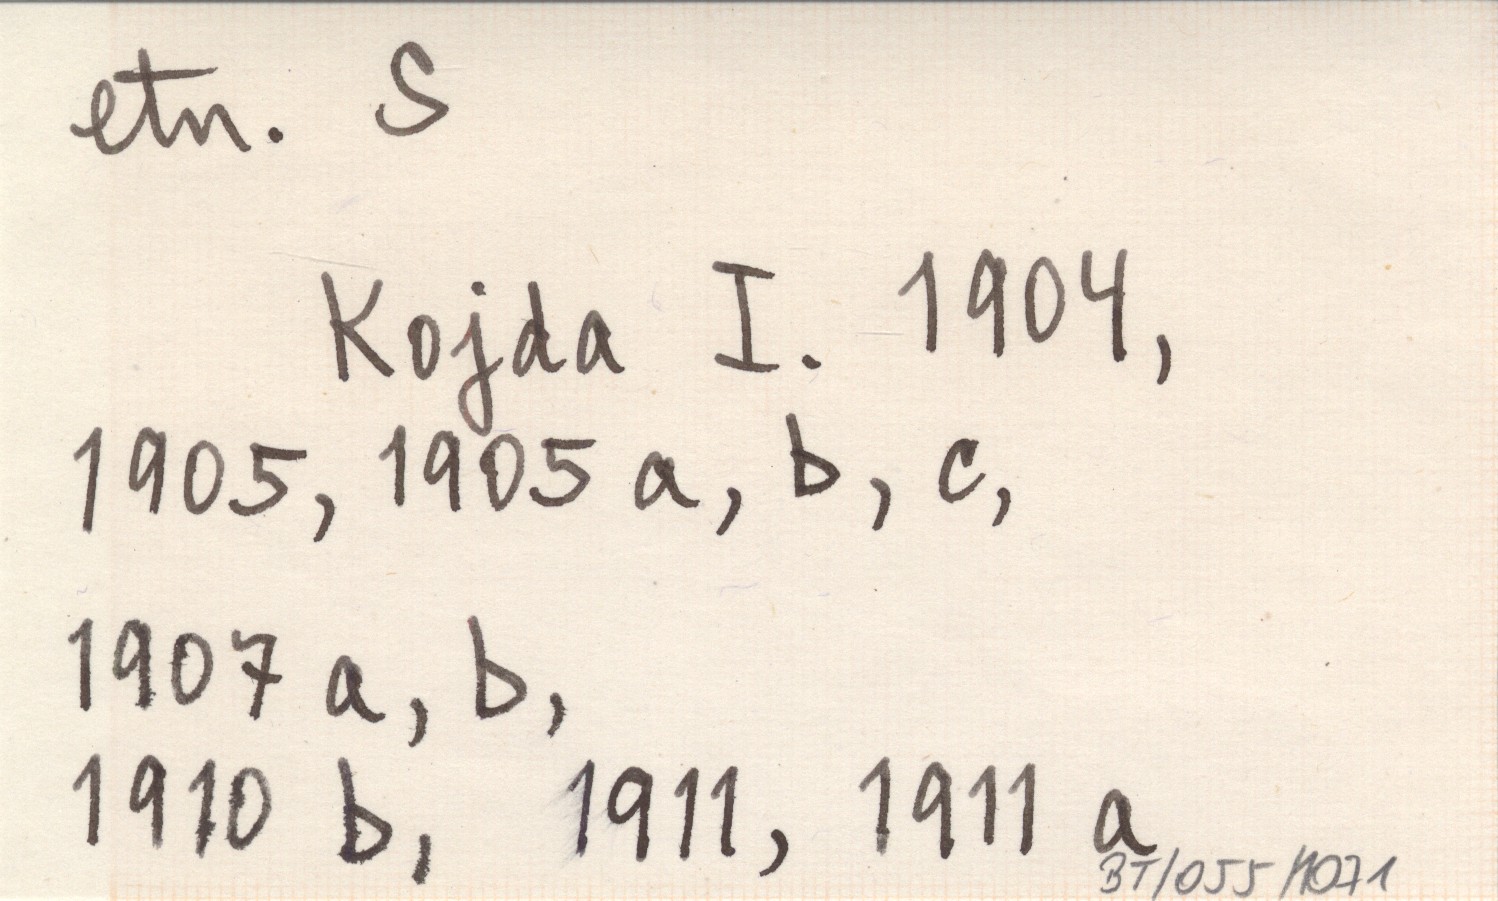 etn. S
Kojda I. 1904,
1905, 1905 a, b, c,
1907 a, b,
1910 b, 1911, 1911 a
BT/055/1071